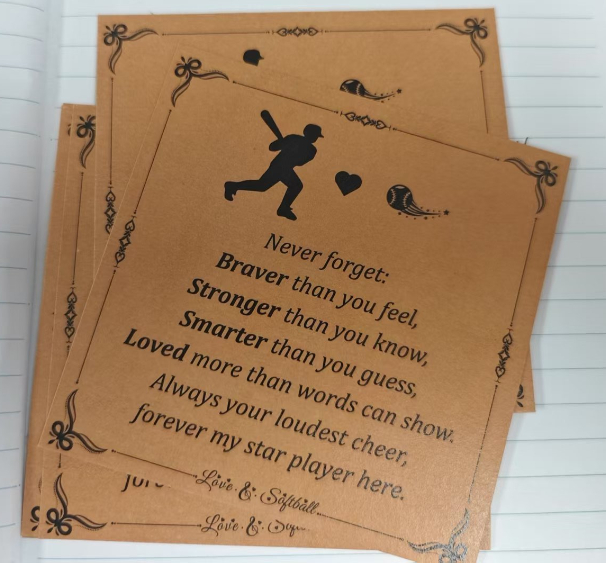 Never forget:
Braver than you feel,
Stronger than you know,
Smarter than you guess,
Loved more than words can show.
Always your loudest cheer,
forever my star player here.
Love & Softball
Love &